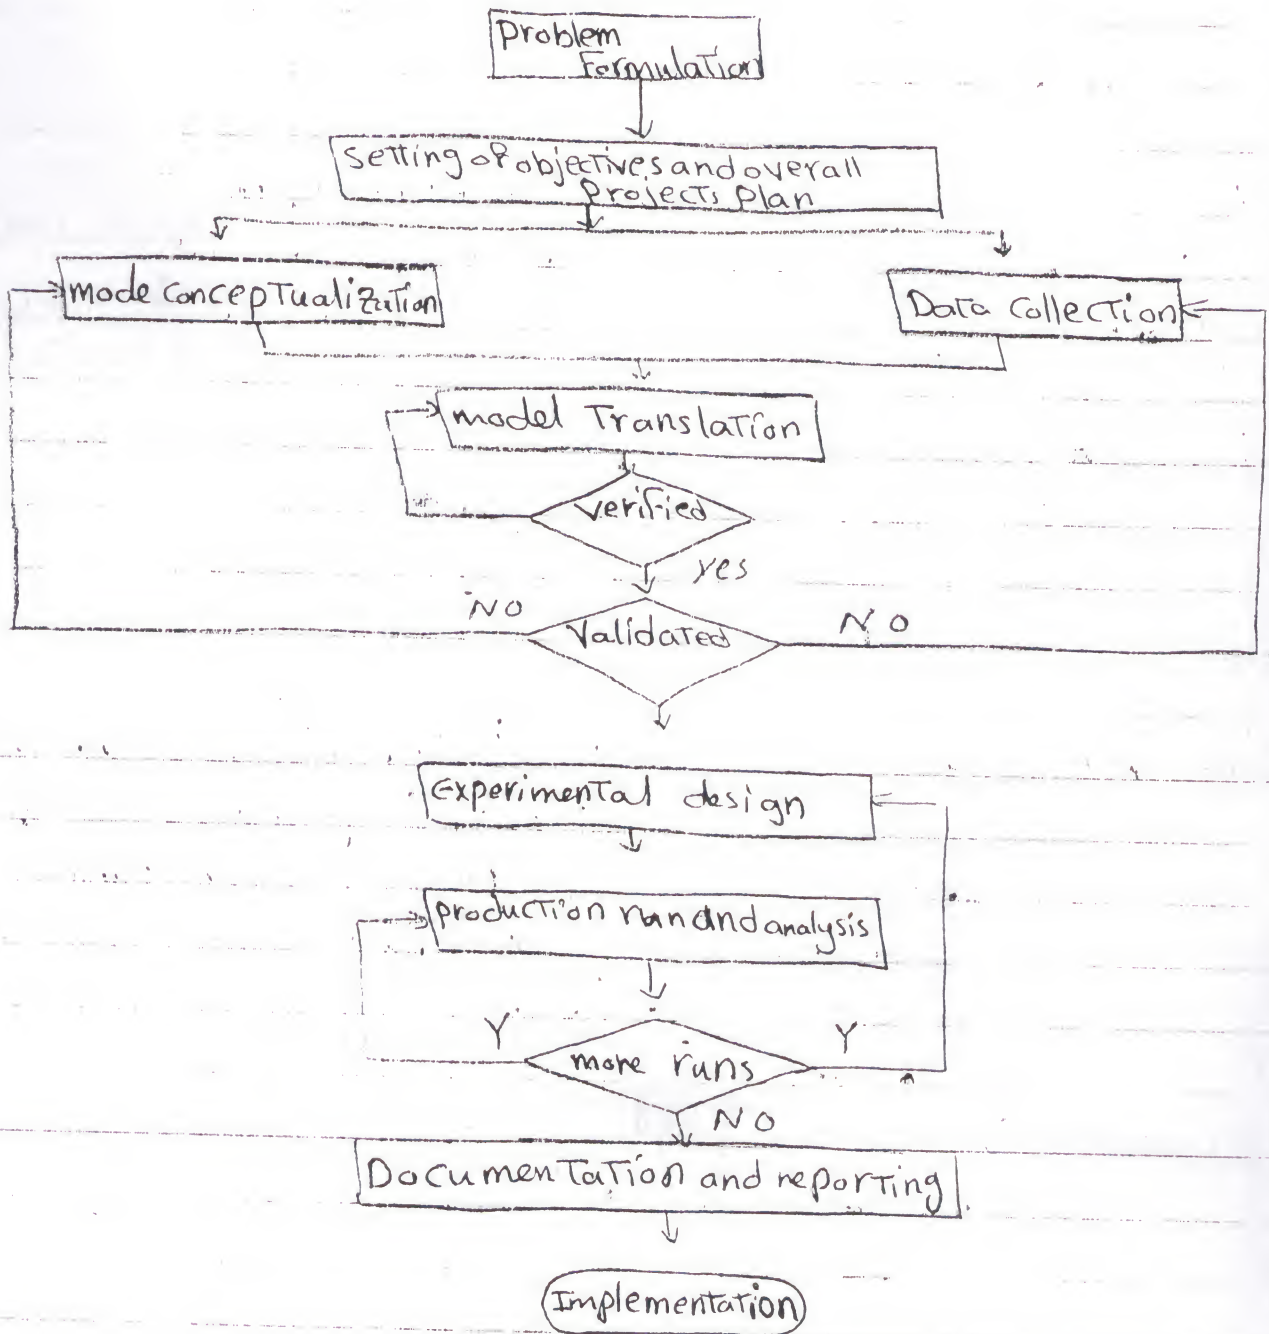 Problem
Formulation
Setting of objectives and overall
Projects Plan
mode Conceptualization
Data Collection
model Translation
Verified
yes
NO
Validated
NO
Experimental design
production run and analysis
Y
more runs
Y
NO
Documentation and reporting
Implementation